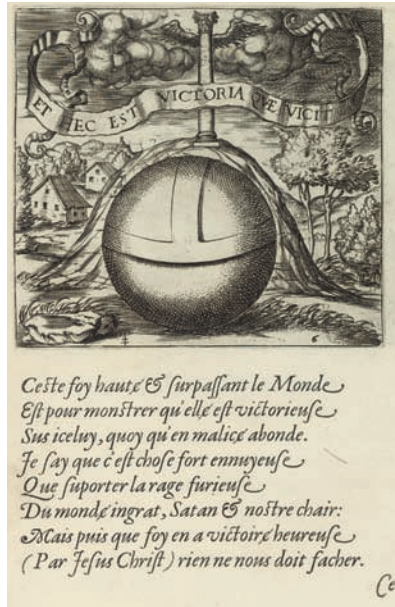 ET HEC EST VICTORIA QVÆ VICIT
6
Ceste foy haute & surpassant le Monde
Est pour monstrer qu'elle est victorieuse
Sus iceluy, quoy qu'en malice abonde.
Je say que c'est chose fort ennuyeuse
Que suporter la rage furieuse
Du monde ingrat, Satan & nostre chair:
Mais puis que foy en a victoire heureuse
(Par Jesus Christ) rien ne nous doit facher.
Ce